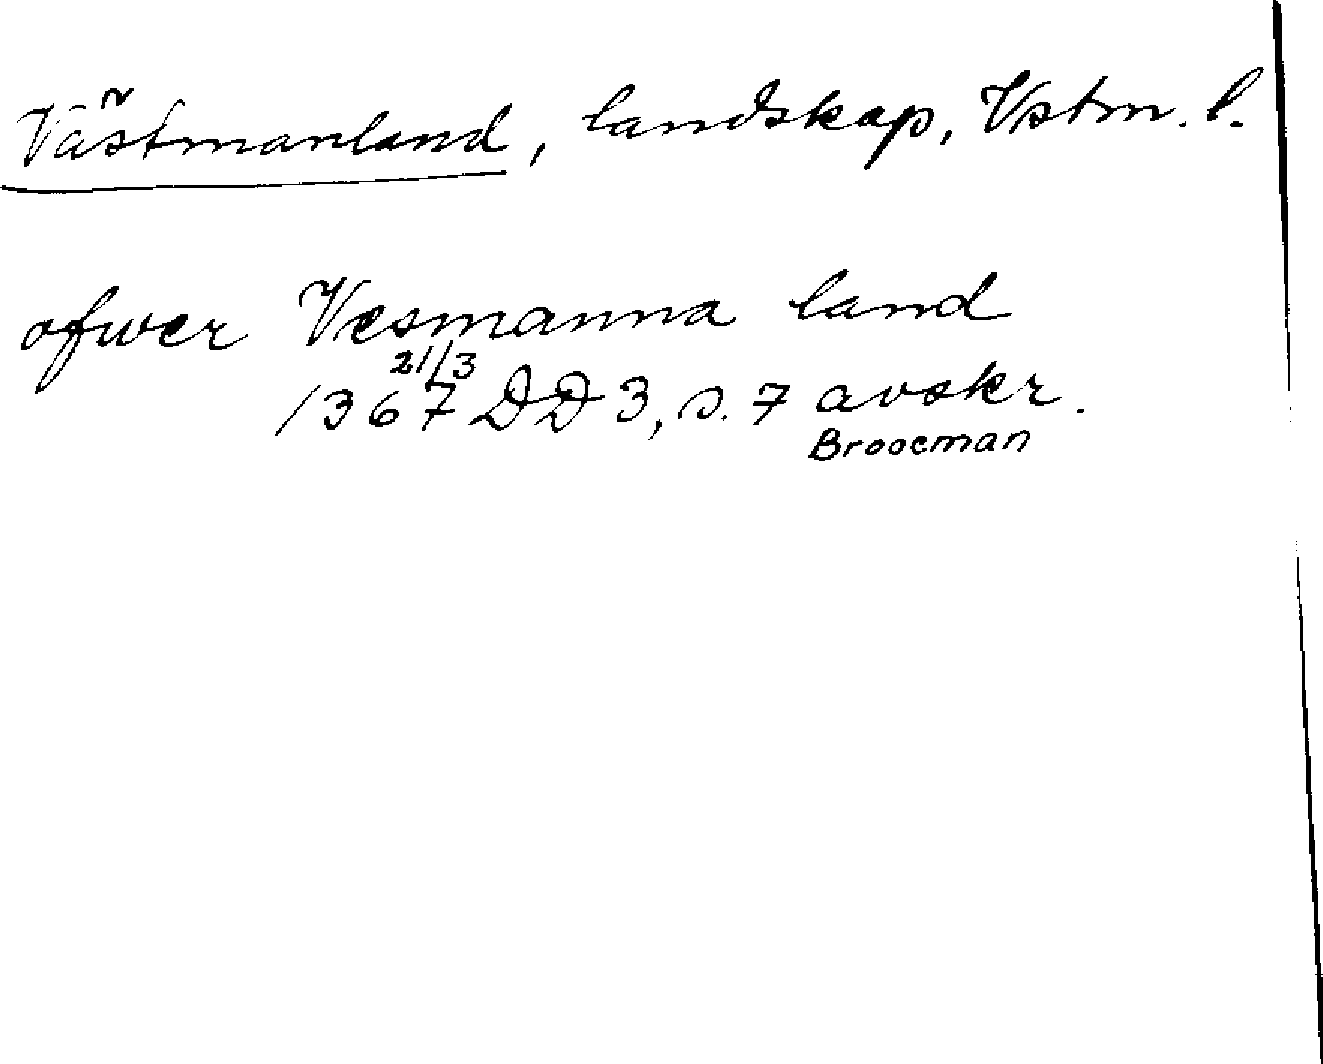 Västmanland, landskap, Vstm. l.
ofwer Vesmanna land
1367 21/3 DD 3, s. 7 avskr.
Broocman